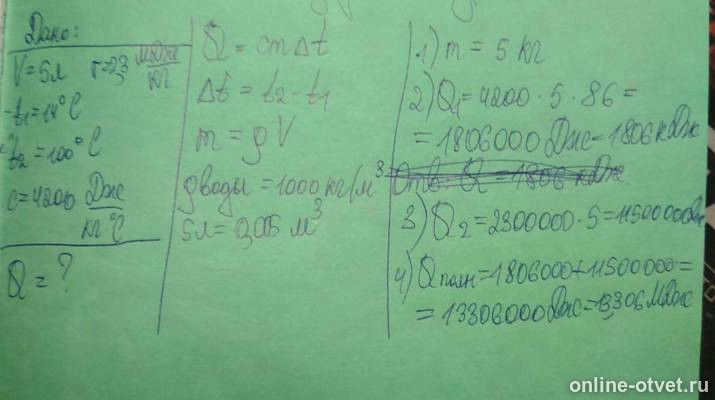 Дано:
V=5л r=2,3 МДж/кг
t₁=14°C
t₂=100°C
c=4200 Дж/кг°C
Q=?
Q=cmΔt
Δt=t₂-t₁
m=ρV
ρводы=1000кг/м³
5л=0,005м³
1) m=5кг
2) Q₁=4200·5·86=
=1806000Дж=1806кДж
Отв: Q=1806кДж
3) Q₂=2300000·5=11500000Дж
4) Qполн=1806000+11500000=
=13306000Дж=13,306МДж
online-otvet.ru